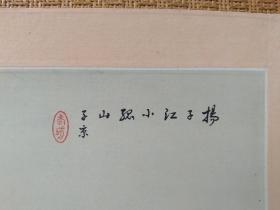 揚子江小孤山
子京